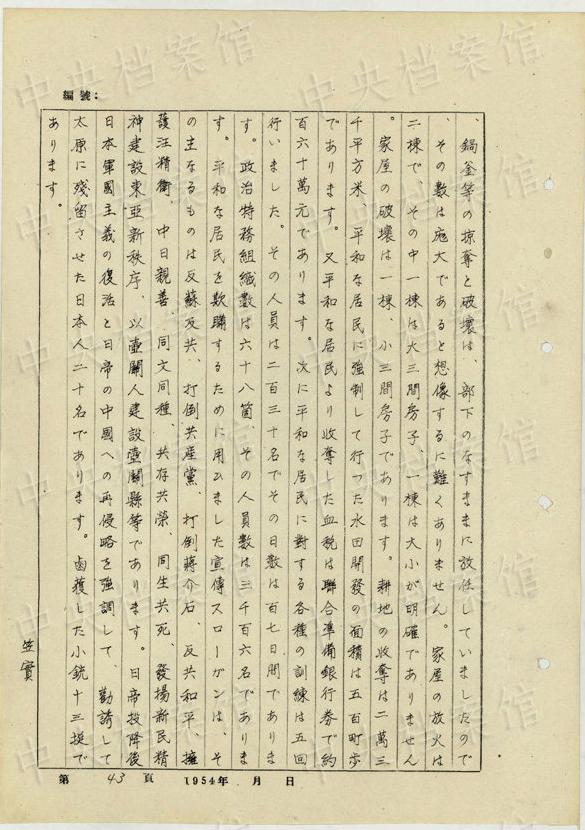 編號：
鍋釜等の掠奪と破壊は、部下のなすまゝに放任していましたので
、その数は庞大であると想像するに難くありません。家屋の放火は
二棟で、その中一棟は大三間房子、一棟は大小が明確でありません
。家屋の破壊は一棟、小三間房子であります。耕地の收奪は二萬三
千平方米、平和な居民に強制して行った水田開發の面積は五百町步
であります。又平和な居民より收奪した血税は聯合準備銀行券で約
百六十萬元であります。次に平和な居民に對する各種の訓練は五回
行いました。その人員は二百三十名でその日数は百七日間でありま
す。政治特務組織数は六十八箇、その人員数は三千百六名でありま
す。平和な居民を欺瞞するために用ひました宣傳スローガンは、そ
の主なるものは反蘇反共、打倒共産黨、打倒蔣介石、反共和平、擁
護汪精衛、中日親善、同文同種、共存共榮、同生共死、發揚新民精
神建設東亞新秩序、以壺關人建設壺關縣等であります。日帝投降後
日本軍國主義の復活と日帝の中國への再侵略を強調して、勸誘して
太原に殘留させた日本人二十名であります。鹵獲した小銃十三挺で
あります。
笠實
第 43 頁 1954年 月 日
中央档案馆